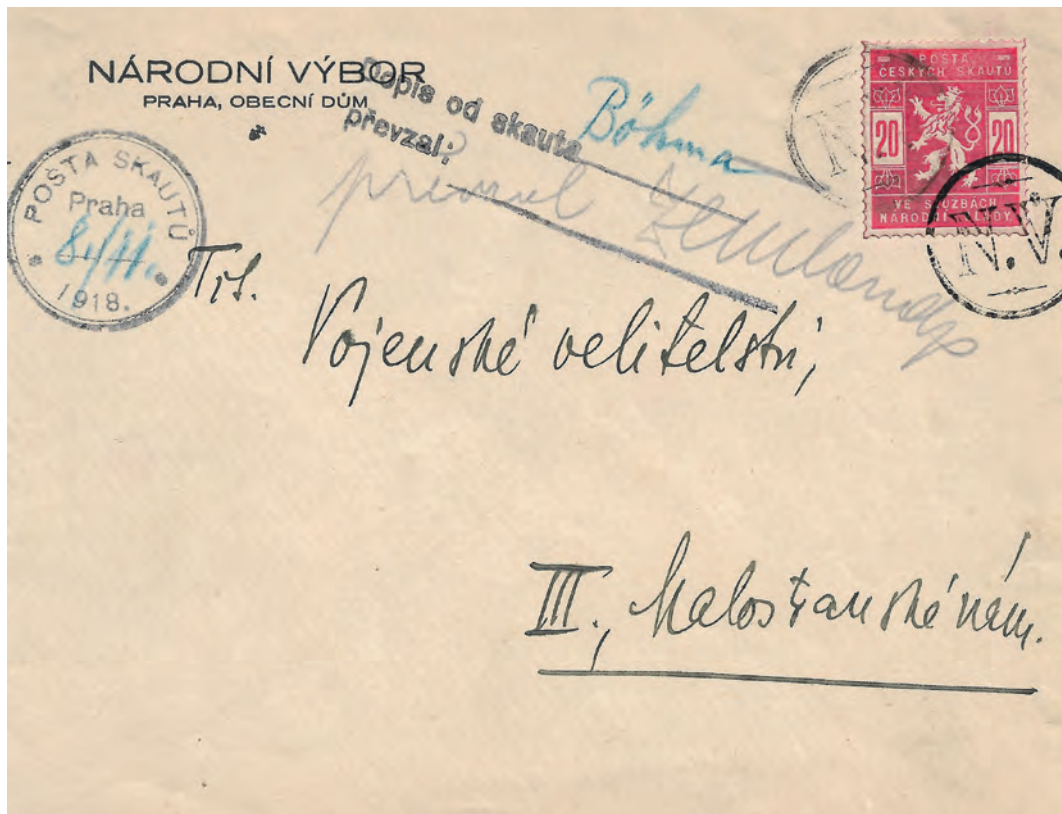 NÁRODNÍ VÝBOR
PRAHA, OBECNÍ DŮM
Dopis od skauta Böhma
převzal:
POŠTA ČESKÝCH SKAUTŮ
20 20
VE SLUŽBÁCH
NÁRODNÍ VLÁDY
N.V.
N.V.
POŠTA SKAUTŮ
Praha
8./11.
1918.
Tit.
Vojenské velitelství,
III., Malostranské nám.